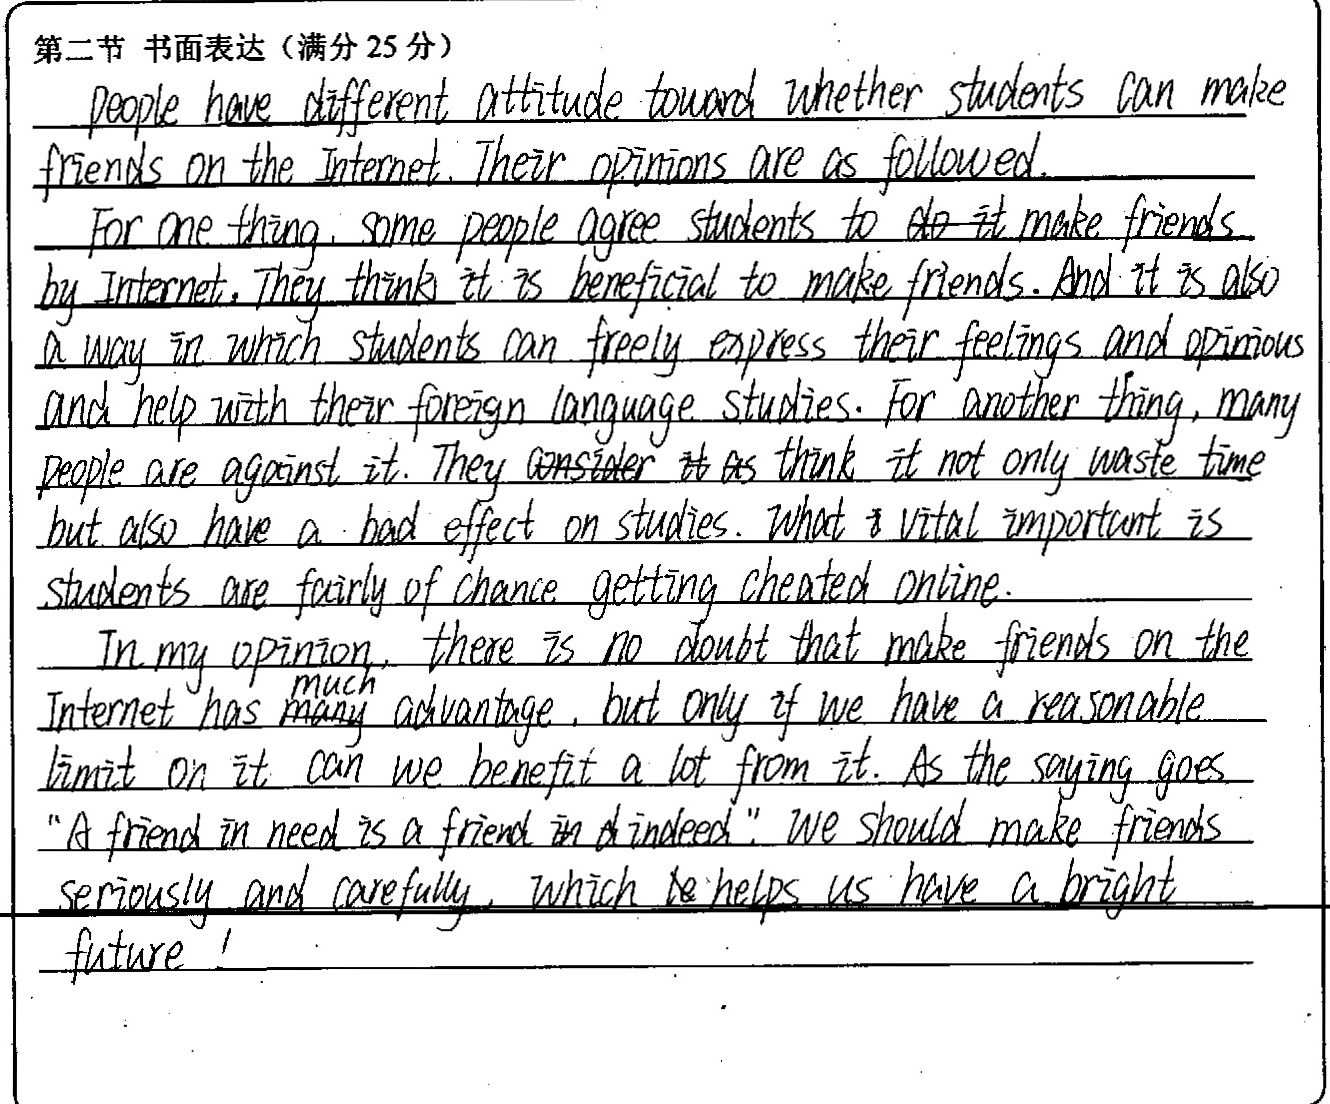 第二节 书面表达（满分 25 分）
People have different attitude toward whether students can make
friends on the Internet. Their opinions are as followed.
For one thing, some people agree students to do it make friends
by Internet. They think it is beneficial to make friends. And it is also
a way in which students can freely express their feelings and opinious
and help with their foreign language studies. For another thing, many
people are against it. They consider it as think it not only waste time
but also have a bad effect on studies. What vital important is
students are fairly of chance getting cheated online.
In my opinion, there is no doubt that make friends on the
much
Internet has many advantage, but only if we have a reasonable
limit on it can we benefit a lot from it. As the saying goes
"A friend in need is a friend in d indeed". We should make friends
seriously and carefully, which helps us have a bright
future !